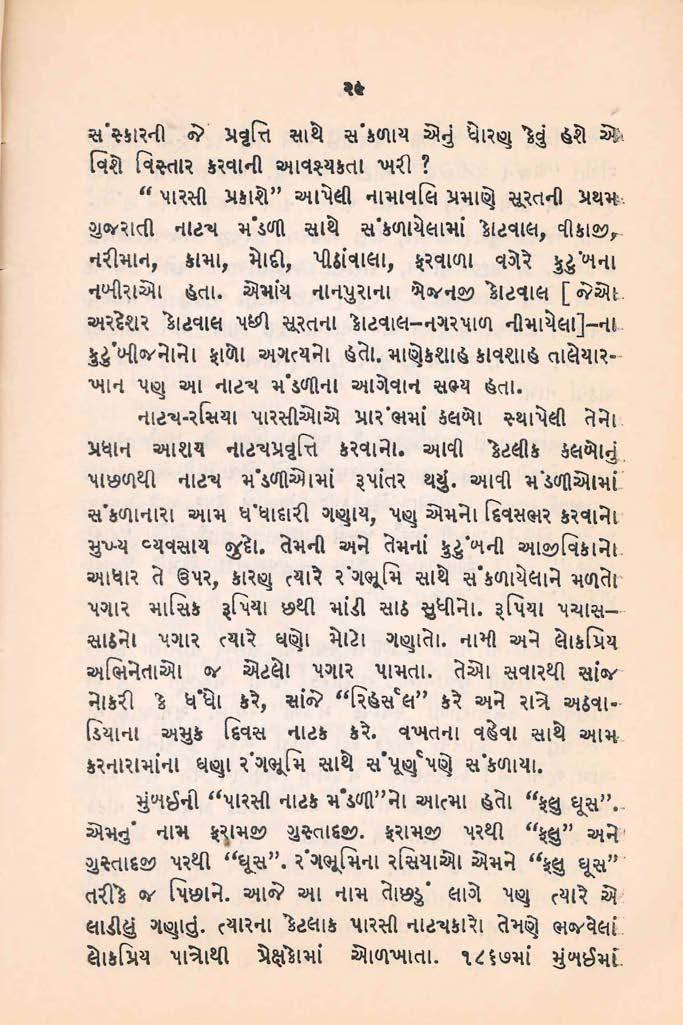 ૨૯
સંસ્કારની જે પ્રવૃત્તિ સાથે સંકળાય એનું ધોરણ કેવું હશે એ
વિશે વિસ્તાર કરવાની આવશ્યકતા ખરી ?
“ પારસી પ્રકાશે” આપેલી નામાવલિ પ્રમાણે સૂરતની પ્રથમ
ગુજરાતી નાટય મંડળી સાથે સંકળાયેલામાં કોટવાલ, વીકાજી,
નરીમાન, કામા, મોદી, પીઠાંવાલા, ફરવાળા વગેરે કુટુંબના
નબીરાઓ હતા. એમાંય નાનપુરાના બેજનજી કોટવાલ [ જેઓ
અરદેશર કોટવાલ પછી સૂરતના કોટવાલ–નગરપાળ નીમાયેલા]–ના
કુટુંબીજનોનો ફાળો અગત્યનો હતો. માણેકશાહ કાવશાહ તાલેયાર-
ખાન પણ આ નાટય મંડળીના આગેવાન સભ્ય હતા.
નાટય-રસિયા પારસીઓએ પ્રારંભમાં કલબો સ્થાપેલી તેનો
પ્રધાન આશય નાટયપ્રવૃત્તિ કરવાનો. આવી કેટલીક કલબોનું
પાછળથી નાટય મંડળીઓમાં રૂપાંતર થયું. આવી મંડળીઓમાં
સંકળાનારા આમ ધંધાદારી ગણાય, પણ એમનો દિવસભર કરવાનો
મુખ્ય વ્યવસાય જુદો. તેમની અને તેમનાં કુટુંબની આજીવિકાનો
આધાર તે ઉપર, કારણ ત્યારે રંગભૂમિ સાથે સંકળાયેલાને મળતો
પગાર માસિક રૂપિયા છથી માંડી સાઠ સુધીનો. રૂપિયા પચાસ–
સાઠનો પગાર ત્યારે ઘણો મોટો ગણાતો. નામી અને લોકપ્રિય
અભિનેતાઓ જ એટલો પગાર પામતા. તેઓ સવારથી સાંજ
નોકરી કે ધંધો કરે, સાંજે “રિહર્સલ” કરે અને રાત્રે અઠવા-
ડિયાના અમુક દિવસ નાટક કરે. વખતના વહેવા સાથે આમ
કરનારામાંના ઘણા રંગભૂમિ સાથે સંપૂર્ણપણે સંકળાયા.
મુંબઈની “પારસી નાટક મંડળી”નો આત્મા હતો “ફલુ ઘૂસ”.
એમનું નામ ફરામજી ગુસ્તાદજી. ફરામજી પરથી “ફલુ” અને
ગુસ્તાદજી પરથી “ઘૂસ”. રંગભૂમિના રસિયાઓ એમને “ફલુ ઘૂસ”
તરીકે જ પિછાને. આજે આ નામ તોછડું લાગે પણ ત્યારે એ
લાડીલું ગણાતું. ત્યારના કેટલાક પારસી નાટયકારો તેમણે ભજવેલાં
લોકપ્રિય પાત્રોથી પ્રેક્ષકોમાં ઓળખાતા. ૧૮૬૭માં મુંબઈમાં